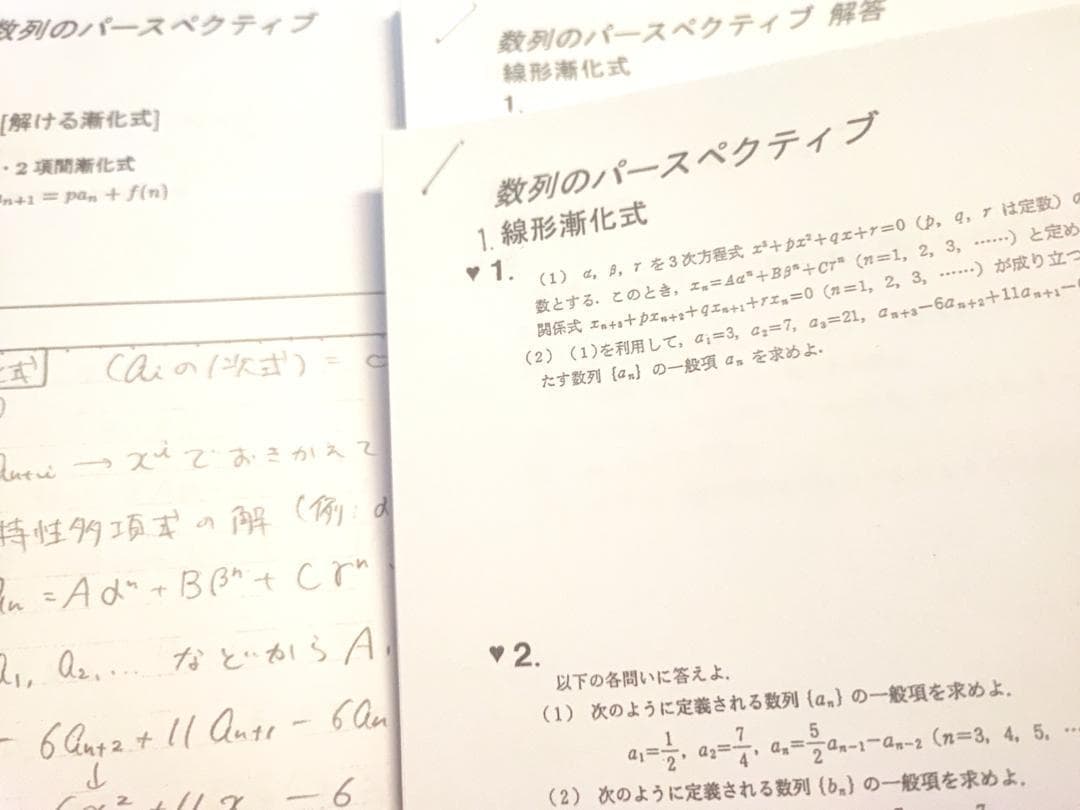 数列のパースペクティブ
[解ける漸化式]
・2 項間漸化式
aₙ₊₁ = paₙ + f(n)
(aᵢの1次式) =
aₙ₊ᵢ → xⁱ でおきかえて
特性多項式の解 (例: α
aₙ = Aαⁿ + Bβⁿ + Cγⁿ
a₁, a₂, … などから A,
- 6aₙ₊₂ + 11aₙ₊₁ - 6aₙ
↓
6x² + 11x - 6
数列のパースペクティブ 解答
線形漸化式
1.
数列のパースペクティブ
1. 線形漸化式
♥ 1. (1) α, β, γ を3次方程式 x³+px²+qx+r=0 (p, q, r は定数) の
数とする. このとき, xₙ=Aαⁿ+Bβⁿ+Cγⁿ (n=1, 2, 3, ……) と定め
関係式 xₙ₊₃+pxₙ₊₂+qxₙ₊₁+rxₙ=0 (n=1, 2, 3, ……) が成り立つ
(2) (1)を利用して, a₁=3, a₂=7, a₃=21, aₙ₊₃-6aₙ₊₂+11aₙ₊₁-
たす数列 {aₙ} の一般項 aₙ を求めよ.
♥ 2.
以下の各問いに答えよ.
(1) 次のように定義される数列 {aₙ} の一般項を求めよ.
a₁=1/2, a₂=7/4, aₙ=5/2 aₙ₋₁-aₙ₋₂ (n=3, 4, 5, …
(2) 次のように定義される数列 {bₙ} の一般項を求めよ.